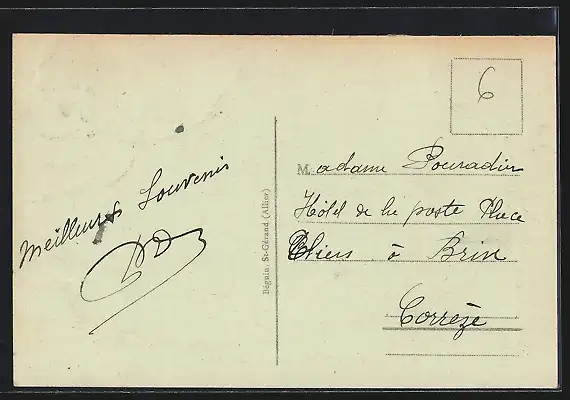 Meilleurs Souvenirs
Béguin, St-Gérand (Allier)
6
Madame Pouradier
Hôtel de la poste Place
Thiers à Brin
Corrèze